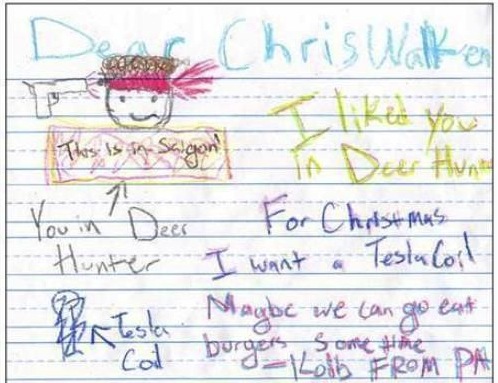 Dear Chris Walken
I liked you
in Deer Hunter
This Is in Saigon!
You in Deer
Hunter
For Christmas
I want a Tesla Coil
Tesla
Coil
Maybe we can go eat
burgers Some time
— Kolb FROM PA